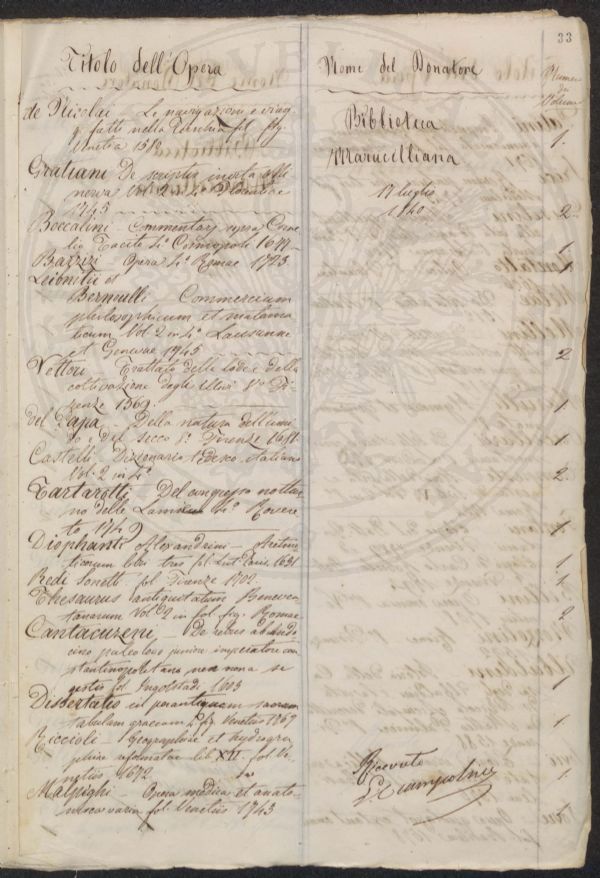 33
Titolo dell'Opera
Nome del Donatore
Numero
di
Volumi
de Nicolai Le navigazioni e viag
gi fatti nella Turchia fol. fig.
Venetia 1580
Biblioteca
Marucelliana
17 luglio
1840
1.
Gratiani De scriptis invita Mi
nerva Vol. 2 in 4° Florentiae
1745
2
Boccalini – Commentarj sopra Corne
lio Tacito 4° Cosmopoli 1677
1
Bazzizi – Opera 4° Romae 1723
1
Leibnitii et
Bernoulli, Commercium
philosophicum et matema
ticum Vol. 2 in 4° Lausannae
et Genevae 1745
2
Vettori Trattato delle lodi e della
coltivazione degli Ulivi 8° Fi
renze 1569
1
del Papa – Della natura dell'umi
do e del secco 8° Firenze 1681
1
Castelli Dizionario tedesco italiano
Vol. 2 in 4°
2
Tartarotti, Del congresso nottur
no delle Lammie 4° Rovere
to 1749
1
Diophanti Alexandrini – Aritme
ticorum libri tres fol. Lut. Paris 1621
1
Redi Sonetti fol. Firenze 1702
1
Thesaurus antiquitatum Beneven
tanarum Vol. 2 in fol. fig. Romae
2
Cantacuzeni – De rebus ab Andro
nico paleologo juniore imperatore con
stantinopolitano nec non a se
gestis fol. Ingolstadi 1603
1
Dissertatio in perantiquam sacram
tabulam graecam Venetiis
1
Riccioli – Geographiae et hydrogra
phiae reformatae lib. XII. fol. Ve
netiis 1672
1
Malpighi – Opera medica et anato
mica varia fol. Venetiis 1743
1
Ricevuto